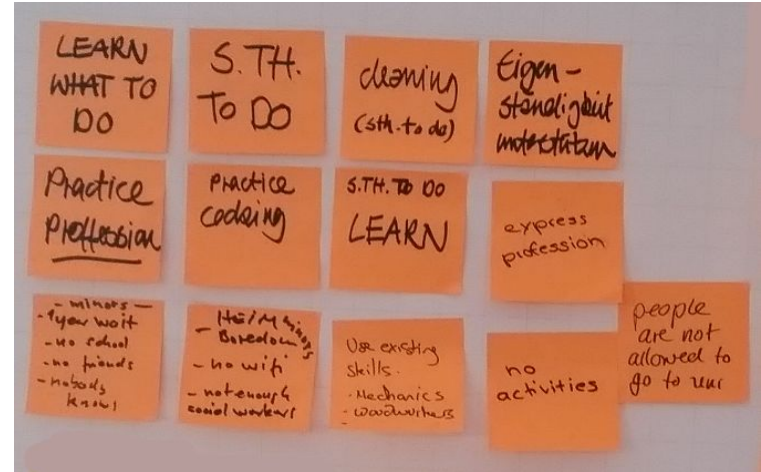 LEARN
WHAT TO
DO
S.TH.
TO DO
cleaning
(sth. to do)
Eigen-
standigkeit
Practice
Proffession
PRACTICE
cooking
S.TH. TO DO
LEARN
express
profession
- minors -
- 1 year wait
- no school
- no friends
- nobody
knows
- minors
Boredom
- no wifi
- not enough
social workers
Use existing
skills.
- Mechanics
- woodworkers
-
no
activities
people
are not
allowed to
go to uni